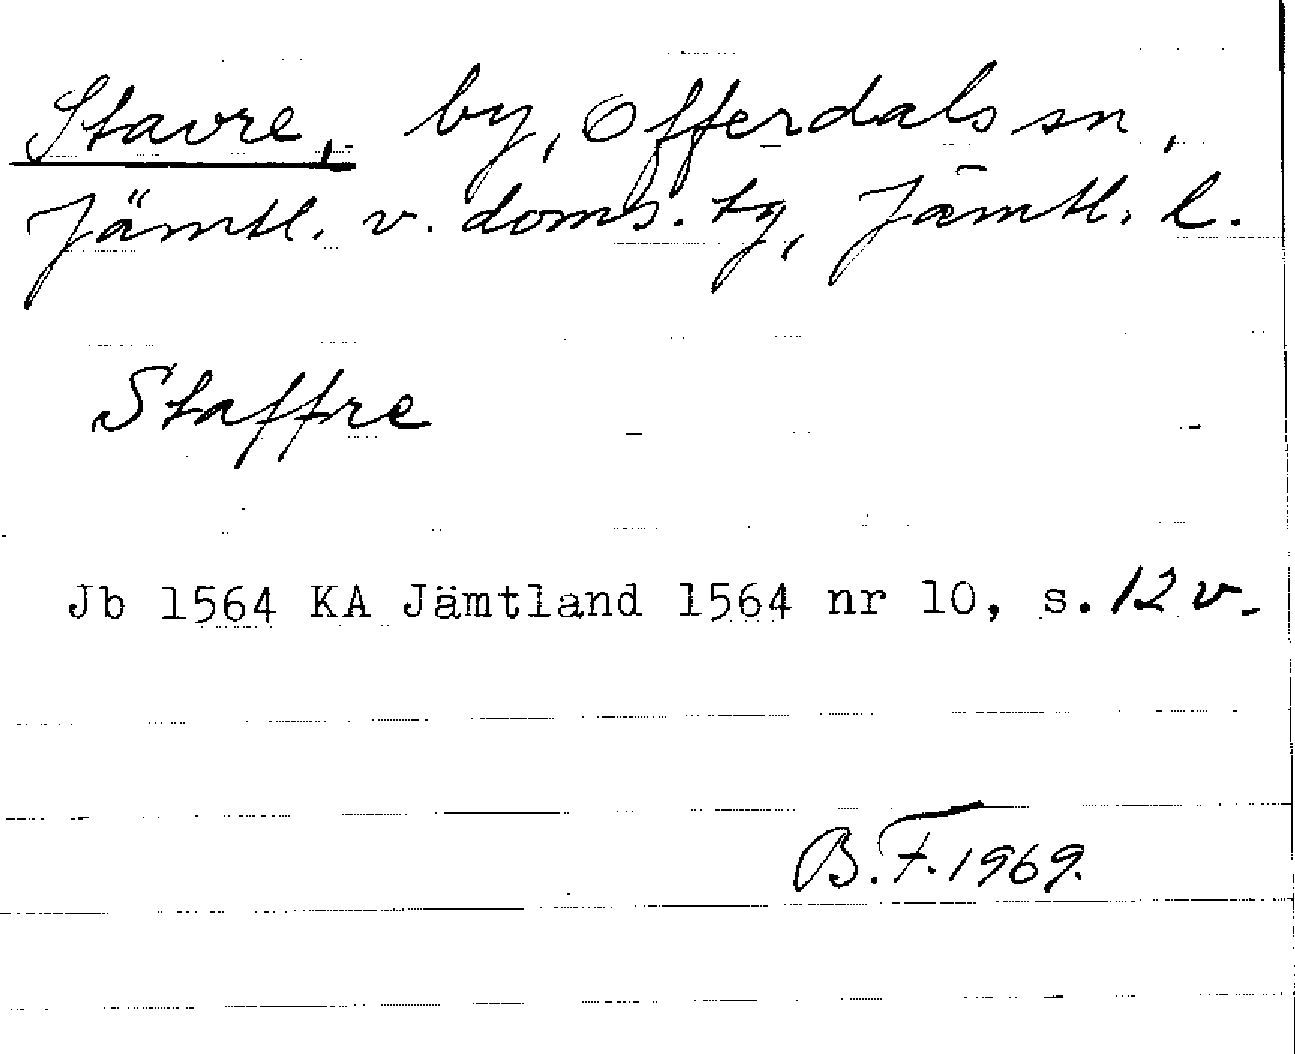 Stavre, by, Offerdals sn,
Jämtl. v. doms. tg, Jämtl. l.
Staffre
Jb 1564 KA Jämtland 1564 nr 10, s. 12 v.
B.F. 1969.